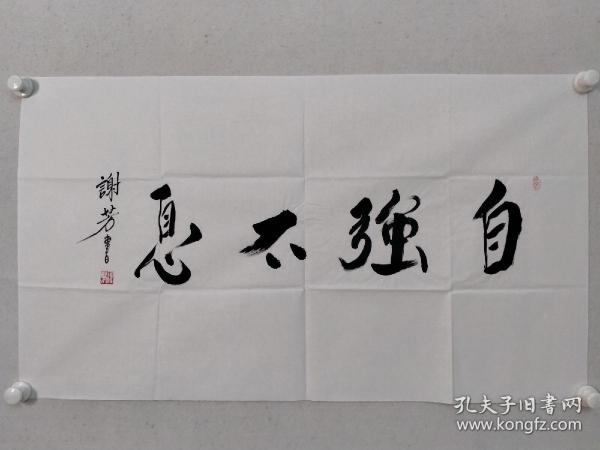 自強不息
謝芳書
孔夫子旧書网
www.kongfz.com